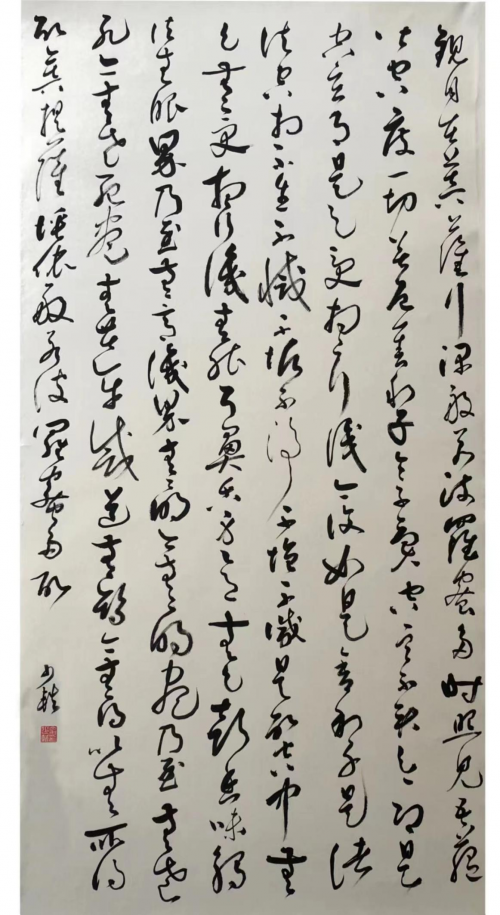 觀自在菩薩行深般若波羅蜜多時照見五蘊
皆空度一切苦厄舍利子色不異空空不異色色即是
空空即是受想行識亦復如是舍利子是諸
法空相不生不滅不垢不淨不增不減是故空中無
色無受想行識無眼耳鼻舌身意無色聲香味觸
法無眼界乃至無意識界無無明亦無無明盡乃至無老
死亦無老死盡無苦集滅道無智亦無得以無所得
故菩提薩埵依般若波羅蜜多故